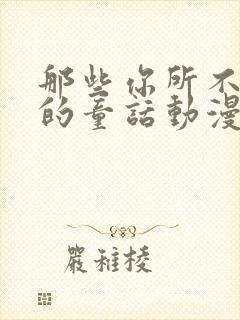 那些你所不
的童話動漫
嚴稚棱